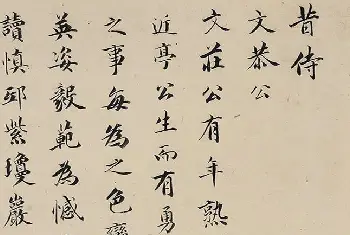 昔侍
文恭公
文莊公有年熟
近亭公生而有勇
之事每為之色
英姿毅範為憾
讀慎郉紫瓊巖